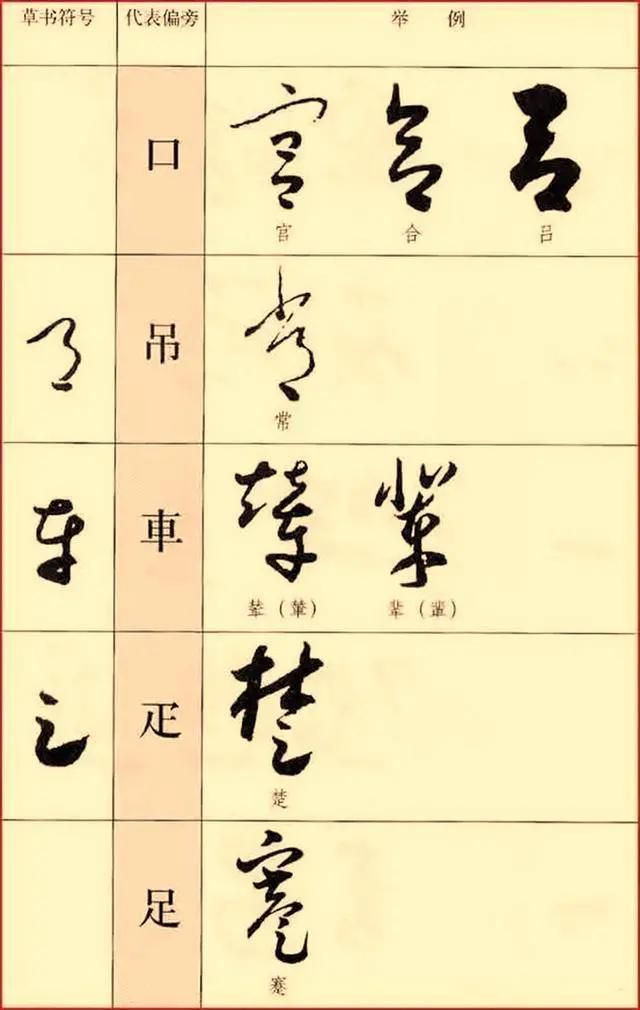 草书符号 代表偏旁 举 例
口
宫 合 吕
吊
常
車
辇（輦） 辈（輩）
疋
楚
足
蹇